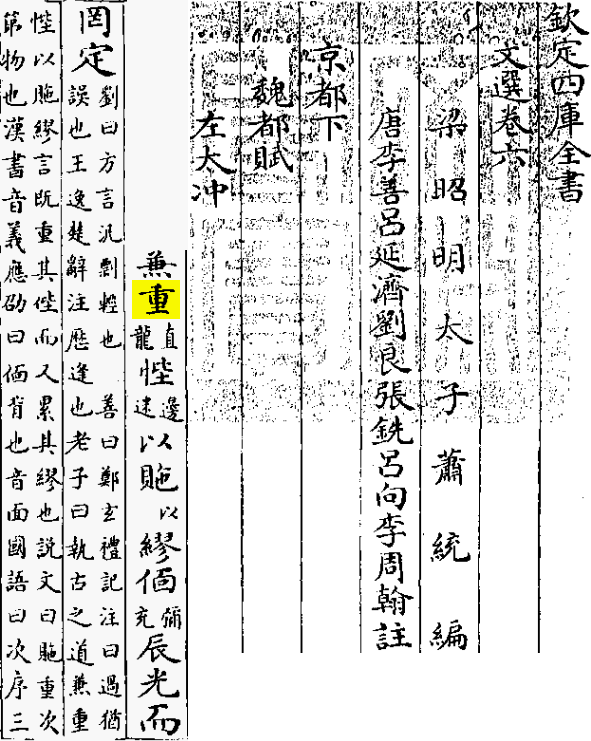 欽定四庫全書
文選卷六
梁昭明太子蕭統編
唐李善呂延濟劉良張銑呂向李周翰註
京都下
魏都賦
左太冲
兼重直龍悂邊迷以𧵳以繆偭彌充辰光而
罔定劉曰方言汎剽輕也 善曰鄭玄禮記注曰過猶
誤也王逸楚辭注歴逢也老子曰執古之道兼重
悂以𧵳繆言既重其悂而又累其繆也説文曰𧵳重次
第物也漢書音義應劭曰偭背也音面國語曰次序三